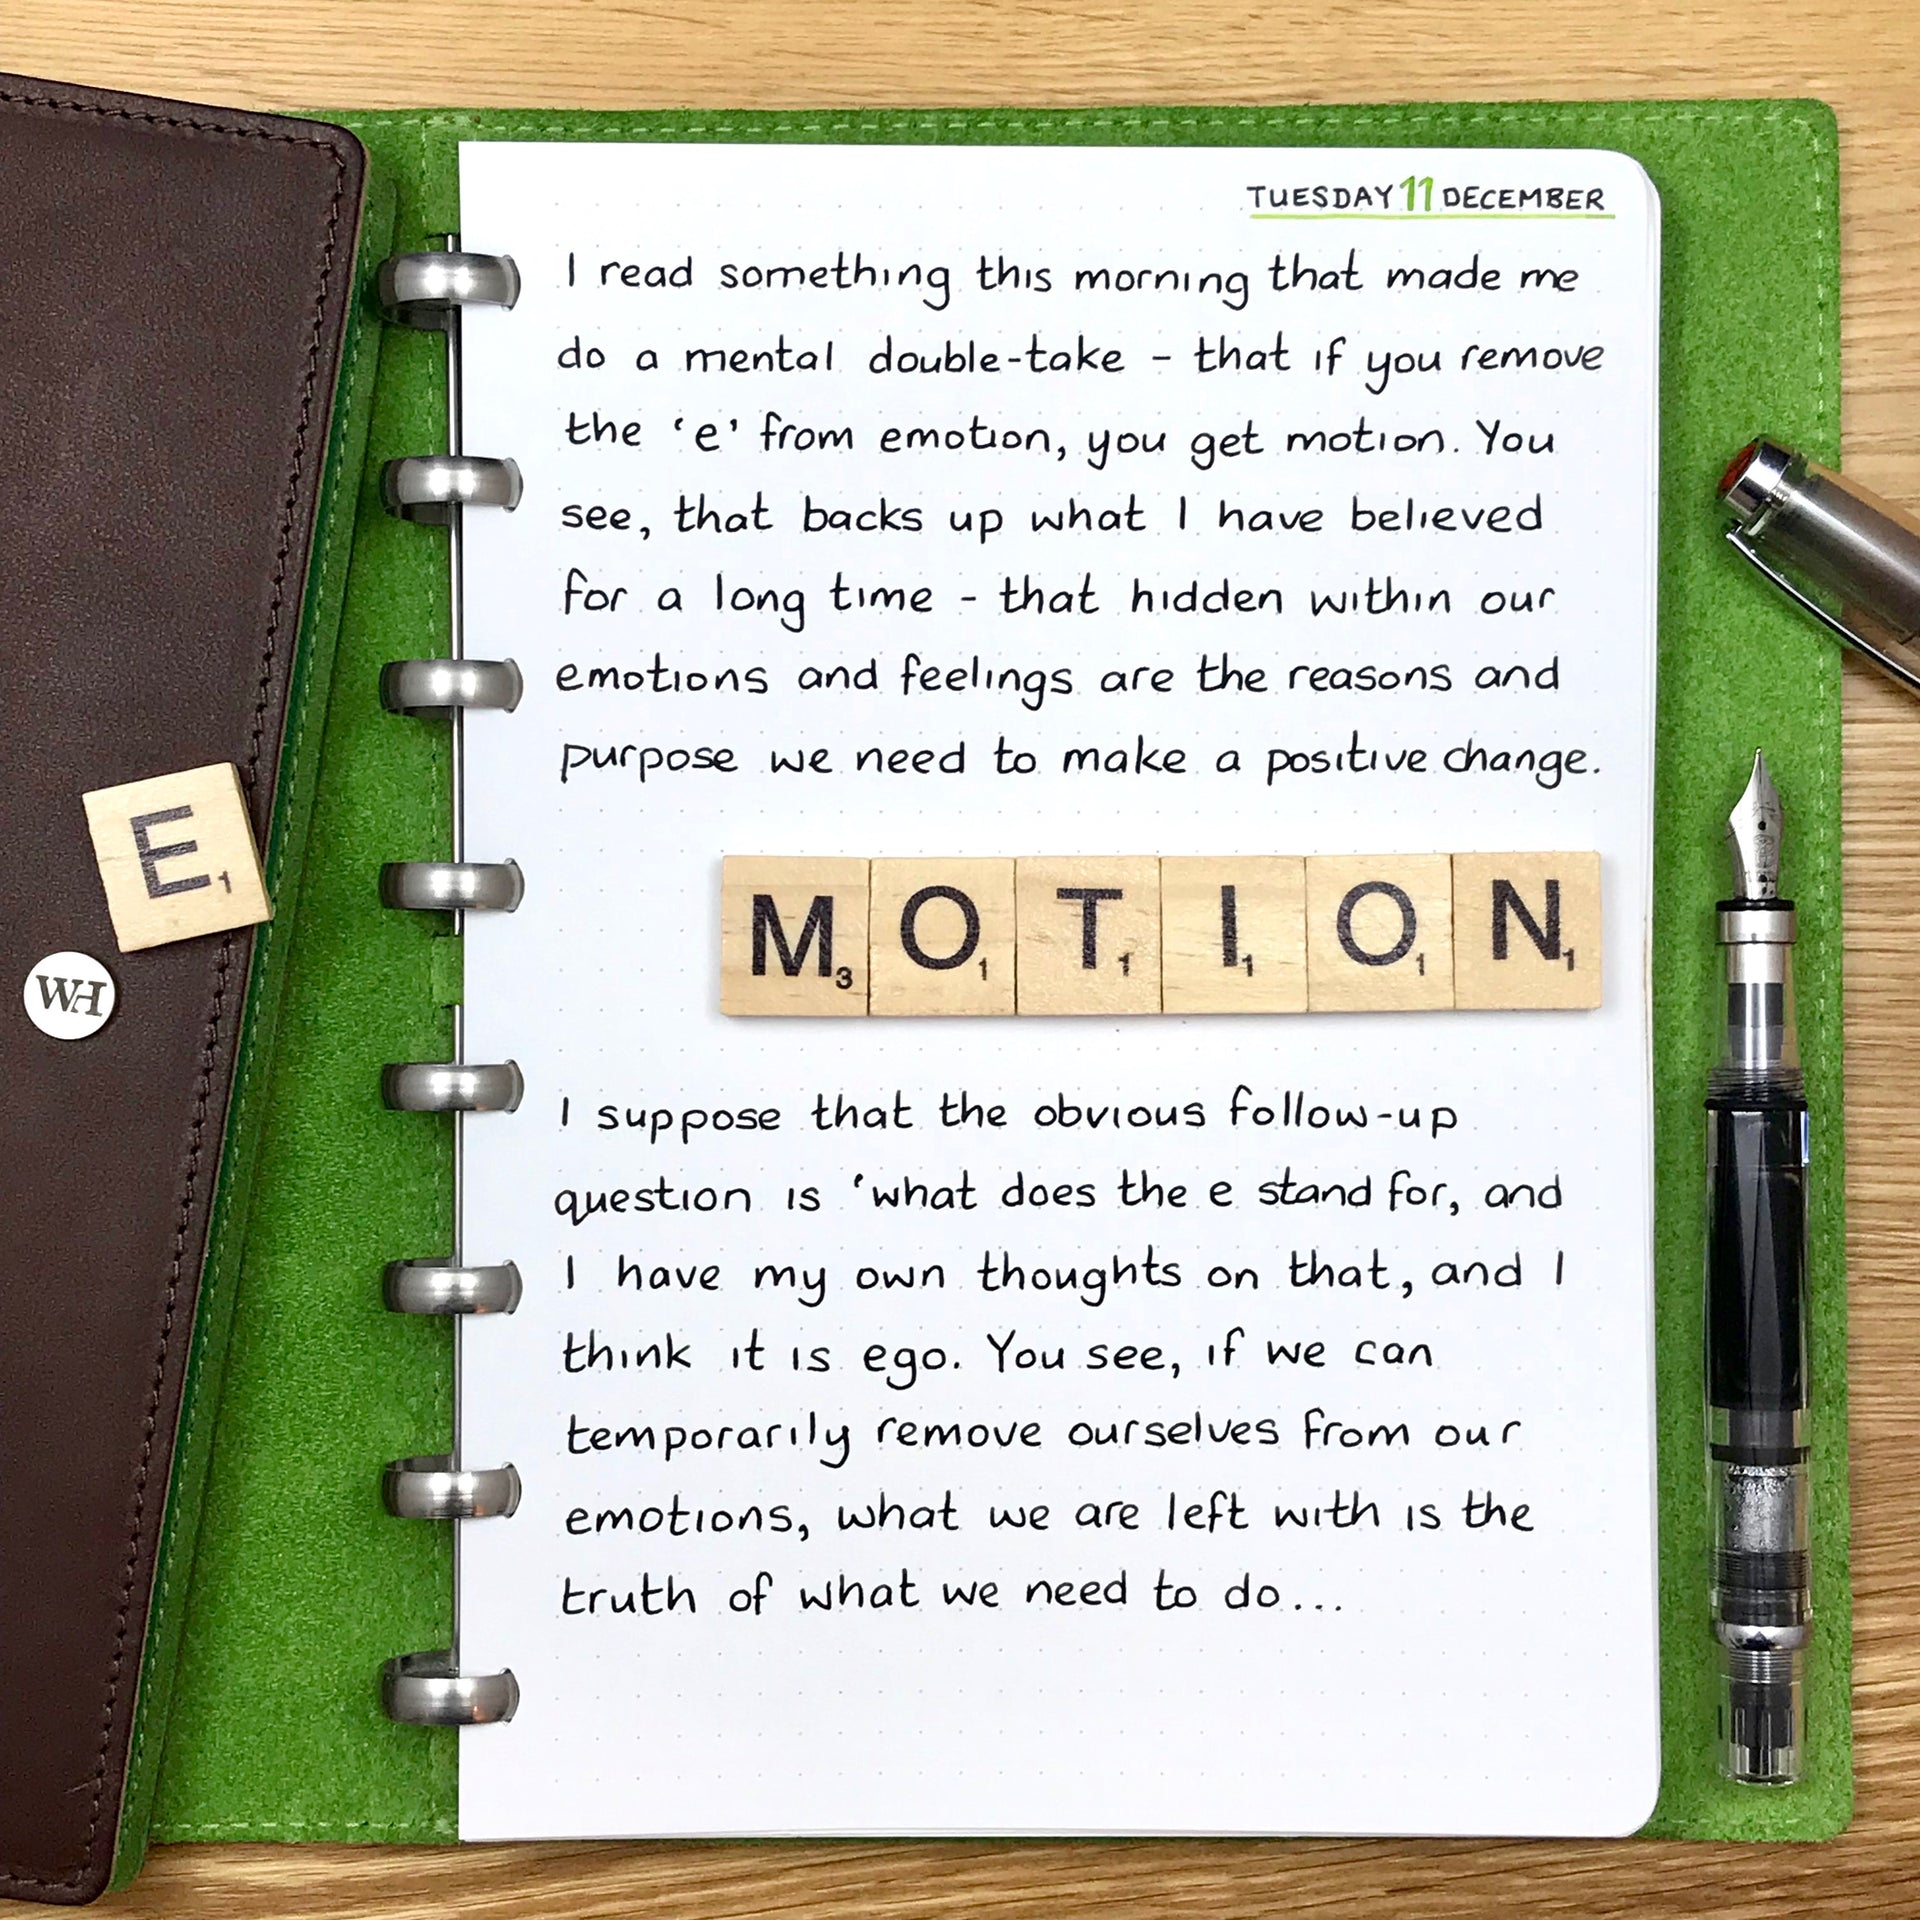 TUESDAY 11 DECEMBER
I read something this morning that made me
do a mental double-take - that if you remove
the 'e' from emotion, you get motion. You
see, that backs up what I have believed
for a long time - that hidden within our
emotions and feelings are the reasons and
purpose we need to make a positive change.
E1
WH
M3 O1 T1 I1 O1 N1
I suppose that the obvious follow-up
question is 'what does the e stand for, and
I have my own thoughts on that, and I
think it is ego. You see, if we can
temporarily remove ourselves from our
emotions, what we are left with is the
truth of what we need to do...